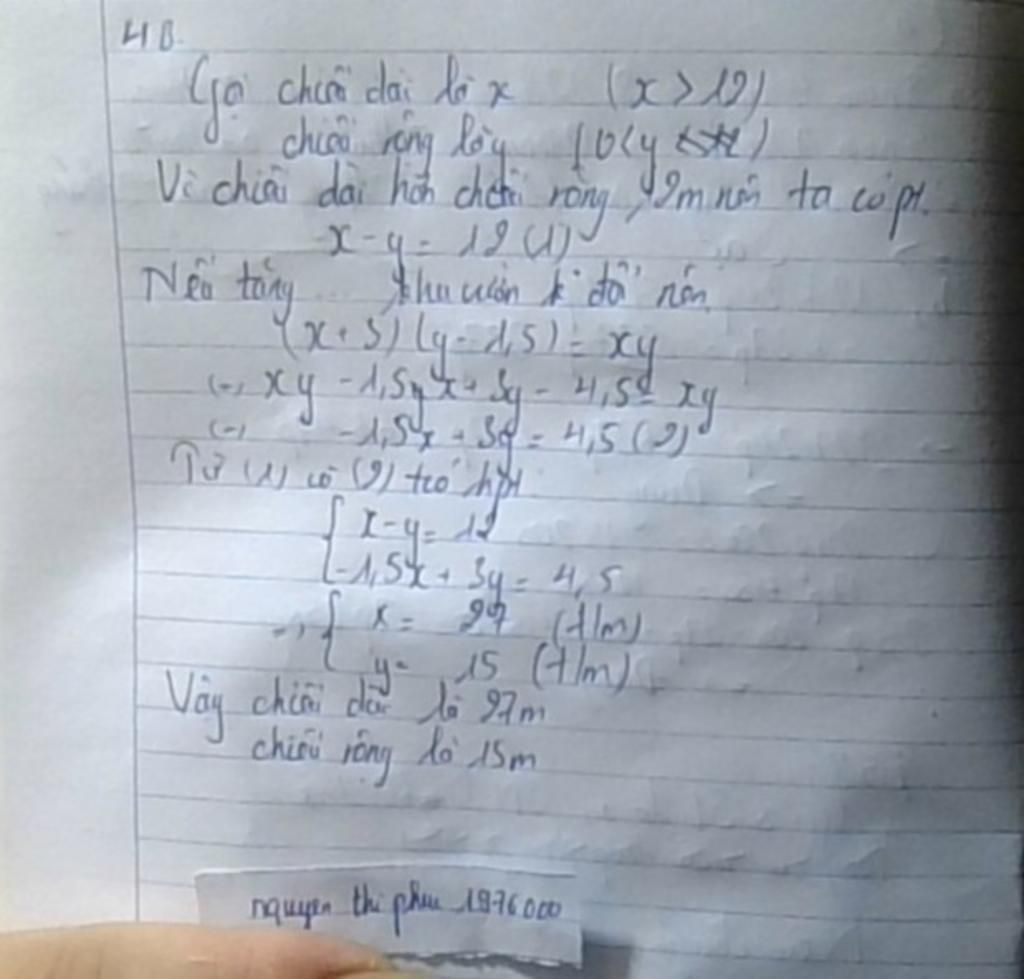 4B.
Gọi chiều dài là x (x > 12)
chiều rộng là y (0<y
Vì chiều dài hơn chiều rộng 12m nên ta có pt.
x - y = 12 (1)
Nếu tăng thu vườn k đổi nên
(x + 3) (y - 1,5) = xy
xy - 1,5x + 3y - 4,5 = xy
- 1,5x + 3y = 4,5 (2)
Từ (1) có (2) hpt
x - y = 12
-1,5x + 3y = 4,5
x = 27 (t/m)
y = 15 (t/m)
Vây chiều dài là 27m
chiều rộng là 15m
nguyen thi phuu 1976000